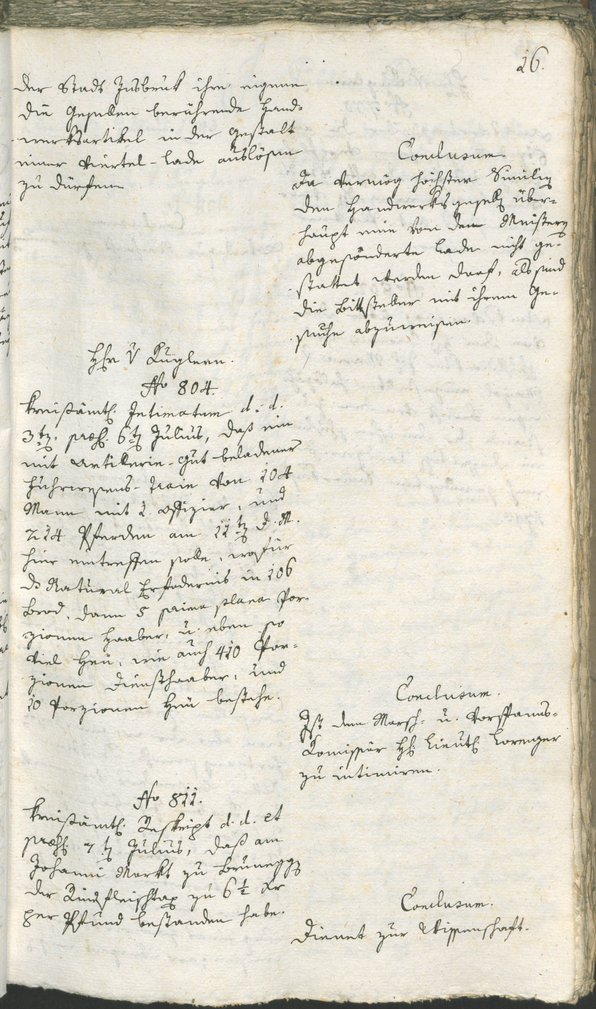 26.
der Stadt Insbruk ihre eigene
die Gesellen berührende Hand-
werksartikel in der Gestalt
einer Viertel-Lade auslösen
zu dürfen
Conclusum
Da vermög höchster
dem Handwerksgesetz über-
haupt eine von den Meistern
abgesönderte Lade nicht ge-
stattet werden darf, als sind
die Bittsteller mit ihrem Ge-
suche abzuweisen.
Hr v Kuglern.
No 804.
Kreisämtl. Intimatum d. d.
3tn. præs. 6tn Julius, daß ein
mit Artillerie-Gut beladener
Fuhrwesens-Train von 104
Mann mit 2 Offizier, und
214 Pferden am 11tn d. M.
hier eintreffen solle, wofür
ds Natural Erfordernis in 106
Brod, dann 5 prima plana Por-
zionen Haaber, u. eben so
viel Heu, wie auch 410 Por-
zionen Diensthaaber, und
10 Porzionen Heu bestehe.
Conclusum.
Ist dem Marsch- u. Vorspanns-
Komissär Hr. Lieut. Lorenger
zu intimiren.
No 811.
Kreisämtl. Reskript d. d. et
præs. 7tn Julius, daß am
Johanni Markt zu Bruneggg
der Rindfleischtax zu 6½ Kr
per Pfund bestanden habe.
Conclusum.
Dienet zur Wissenschaft.